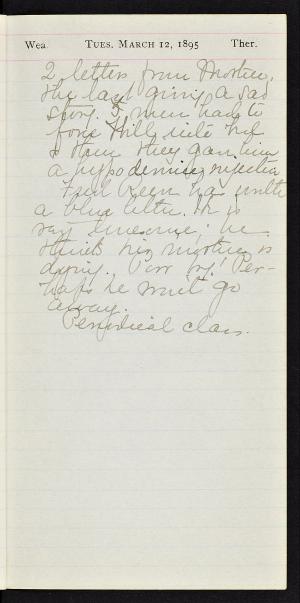 Wea. TUES. MARCH 12, 1895 Ther.
2 letters from Mother,
the last giving a sad
story. 5 men had to
force Will into bed
& then they gave him
a hypodermic injection
Fred Keen has written
a blue letter. He is
very lonesome; he
thinks his mother is
dying. Poor boy! Per-
haps he must go
away.
Periodical class.